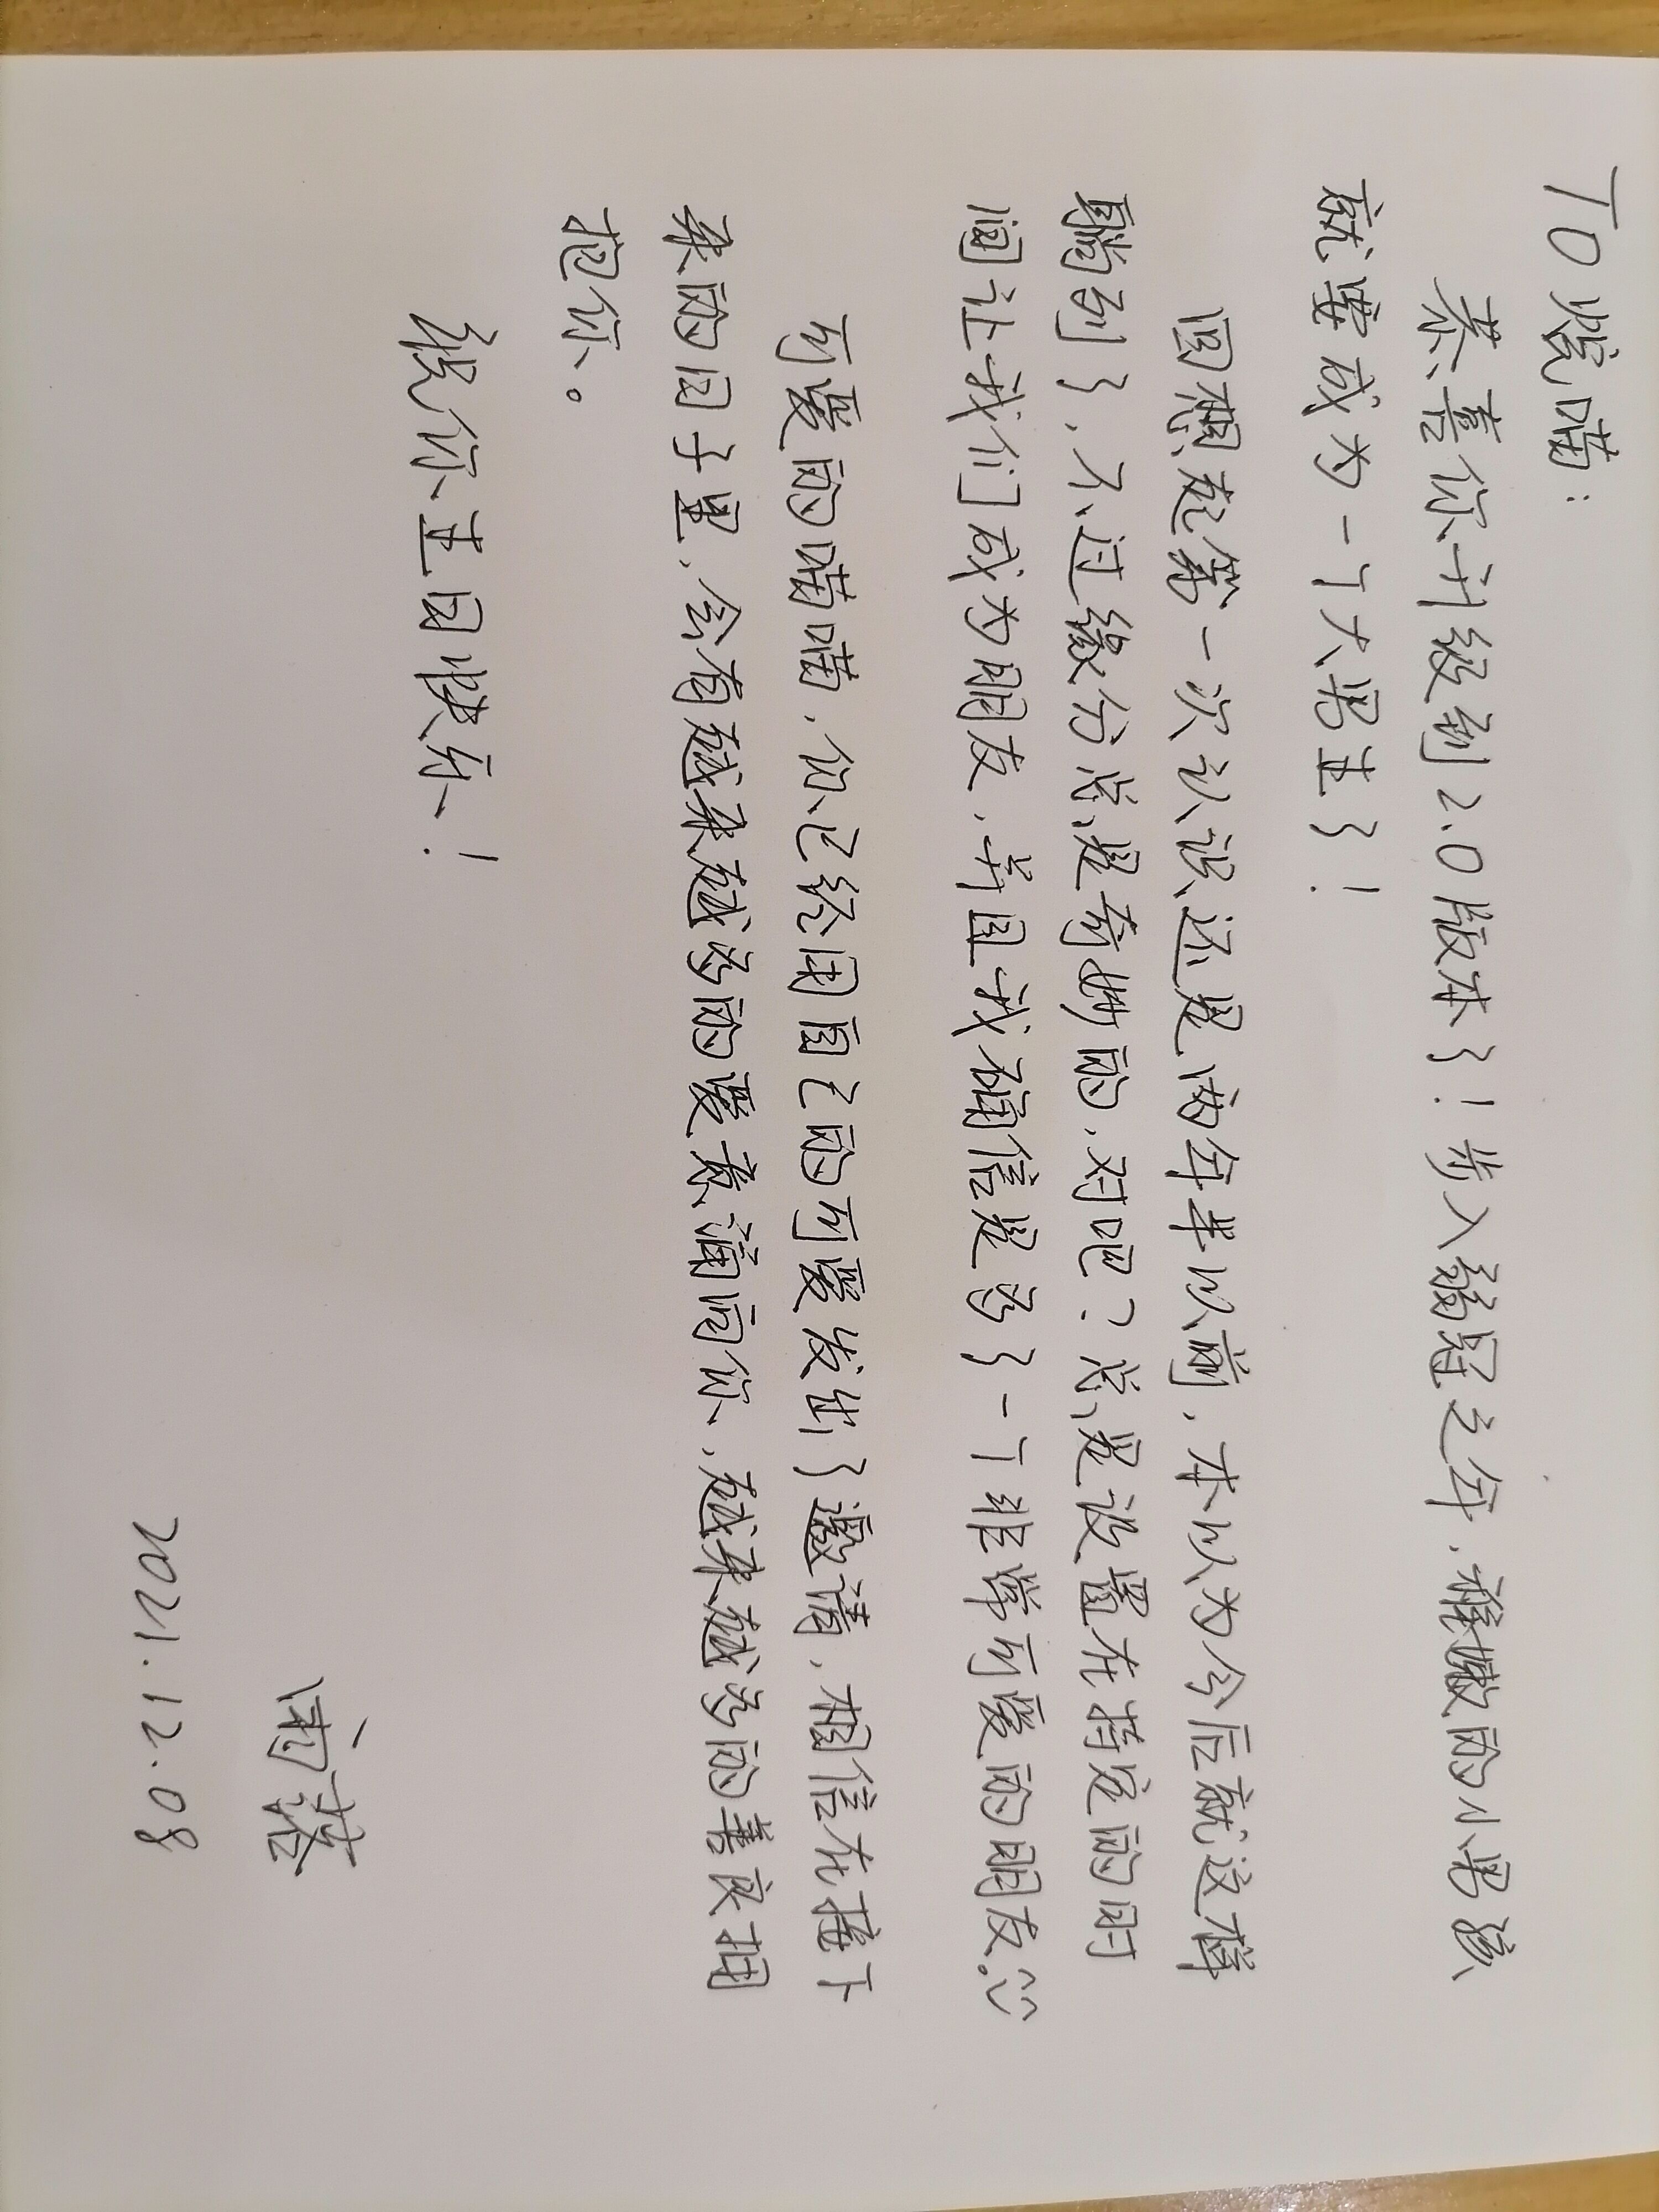 TO 烷喵：
恭喜你升级到2.0版本了！步入弱冠之年，稚嫩的小男孩
就要成为一个大男生了！
回想起第一次认识还是两年半以前，本以为今后就这样
躺列了，不过缘分总是奇妙的，对吧？总是设置在特定的时
间让我们成为朋友，并且我确信是多了一个非常可爱的朋友。^^
可爱的喵喵，你已经用自己的可爱发出了邀请，相信在接下
来的日子里，会有越来越多的爱意涌向你，越来越多的善良拥
抱你。
祝你生日快乐！
雨落
2021.12.08